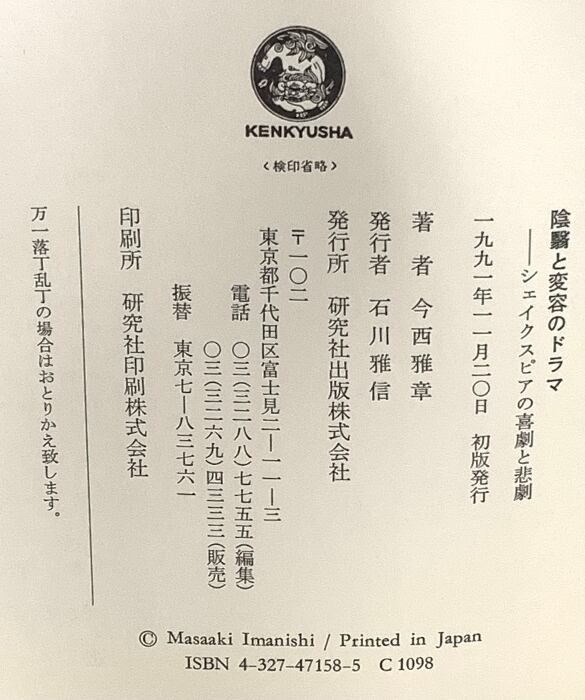 KENKYUSHA
〈検印省略〉
陰翳と変容のドラマ
――シェイクスピアの喜劇と悲劇
一九九一年一一月二〇日　初版発行
著者　今西雅章
発行者　石川雅信
発行所　研究社出版株式会社
〒一〇二
東京都千代田区富士見二―一一―三
電話　〇三(三二八八)七七五五(編集)
〇三(三二六九)四三三三(販売)
振替　東京七―八三七六一
印刷所　研究社印刷株式会社
万一落丁乱丁の場合はおとりかえ致します。
© Masaaki Imanishi / Printed in Japan
ISBN 4-327-47158-5 C 1098